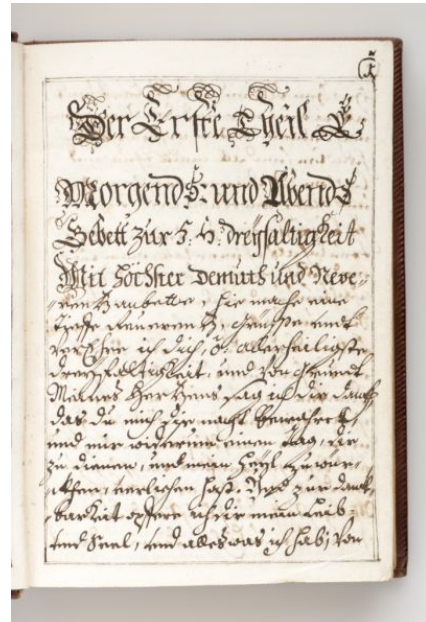 1
Der Erste Theil
Morgends: und Abends
Gebett zur H: H: Dreyfaltigkeit
Mit Höchster Demuth und Reve=
renz anbette, hie mache eine
tieffe Reverenz, grüsse undt
verEhre ich dich, O allerheiligste
dreyfaltigkeit, und von grundt
Meines Herzens sag ich dir danckh,
das du mich die nacht bewahret,
und mir widerumb einen tag, dir
zu dienen, und mein Heyl zu wür=
ckhen, verlichen hast: Und zur danckh=
barkeit opfere ich dir mein Leib
und Seel, und alles was ich hab, von